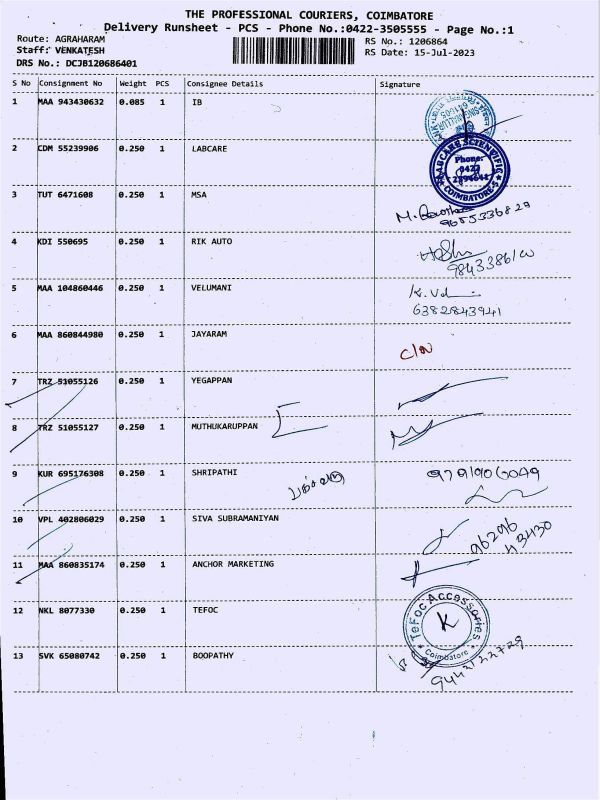 THE PROFESSIONAL COURIERS, COIMBATORE
Delivery Runsheet - PCS - Phone No.:0422-3505555 - Page No.:1
Route: AGRAHARAM
Staff: VENKATESH
DRS No.: DCJB120686401
RS No.: 1206864
RS Date: 15-Jul-2023
S No Consignment No Weight PCS Consignee Details Signature
1 MAA 943430632 0.085 1 IB
2 CDM 55239906 0.250 1 LABCARE
LABCARE SCIENTIFIC
Phone:
0422
COIMBATORE-5
3 TUT 6471608 0.250 1 MSA
9655336829
4 KDI 550695 0.250 1 RIK AUTO
5 MAA 104860446 0.250 1 VELUMANI
6382843941
6 MAA 860844980 0.250 1 JAYARAM
7 TRZ 51055126 0.250 1 YEGAPPAN
8 TRZ 51055127 0.250 1 MUTHUKARUPPAN
9 KUR 695176308 0.250 1 SHRIPATHI
10 VPL 402806029 0.250 1 SIVA SUBRAMANIYAN
96296
43430
11 MAA 860835174 0.250 1 ANCHOR MARKETING
12 NKL 8077330 0.250 1 TEFOC
TeFoc Accessories
K
Coimbatore
13 SVK 65080742 0.250 1 BOOPATHY
9442122729